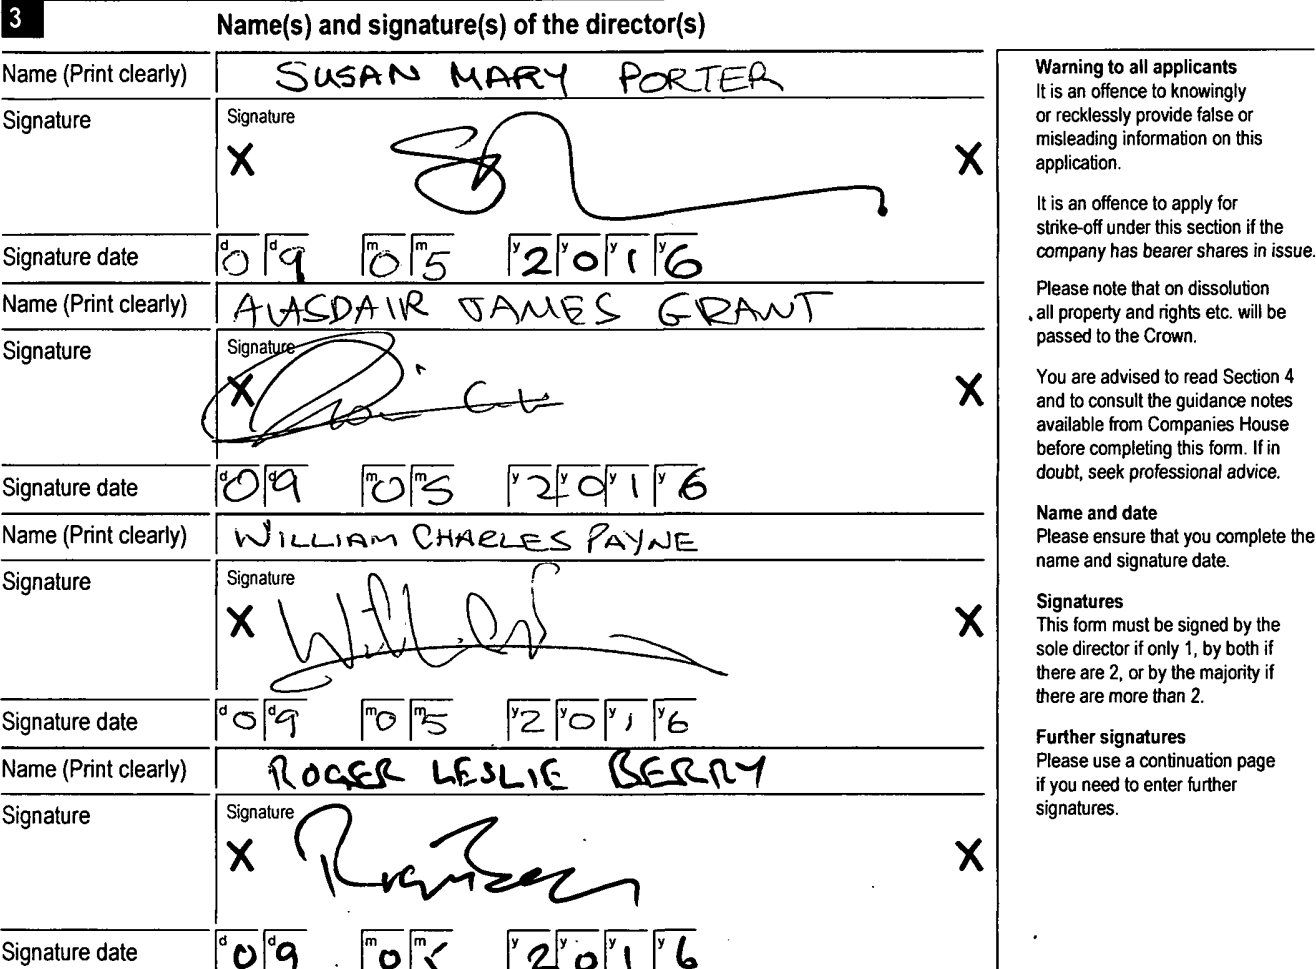 3 Name(s) and signature(s) of the director(s)
Name (Print clearly) SUSAN MARY PORTER
Signature Signature
X X
Signature date d0 d9 m0 m5 y2 y0 y1 y6
Name (Print clearly) ALASDAIR JAMES GRANT
Signature Signature
X X
Signature date d0 d9 m0 m5 y2 y0 y1 y6
Name (Print clearly) WILLIAM CHARLES PAYNE
Signature Signature
X X
Signature date d0 d9 m0 m5 y2 y0 y1 y6
Name (Print clearly) ROGER LESLIE BERRY
Signature Signature
X X
Signature date d0 d9 m0 m5 y2 y0 y1 y6
Warning to all applicants
It is an offence to knowingly
or recklessly provide false or
misleading information on this
application.
It is an offence to apply for
strike-off under this section if the
company has bearer shares in issue.
Please note that on dissolution
all property and rights etc. will be
passed to the Crown.
You are advised to read Section 4
and to consult the guidance notes
available from Companies House
before completing this form. If in
doubt, seek professional advice.
Name and date
Please ensure that you complete the
name and signature date.
Signatures
This form must be signed by the
sole director if only 1, by both if
there are 2, or by the majority if
there are more than 2.
Further signatures
Please use a continuation page
if you need to enter further
signatures.